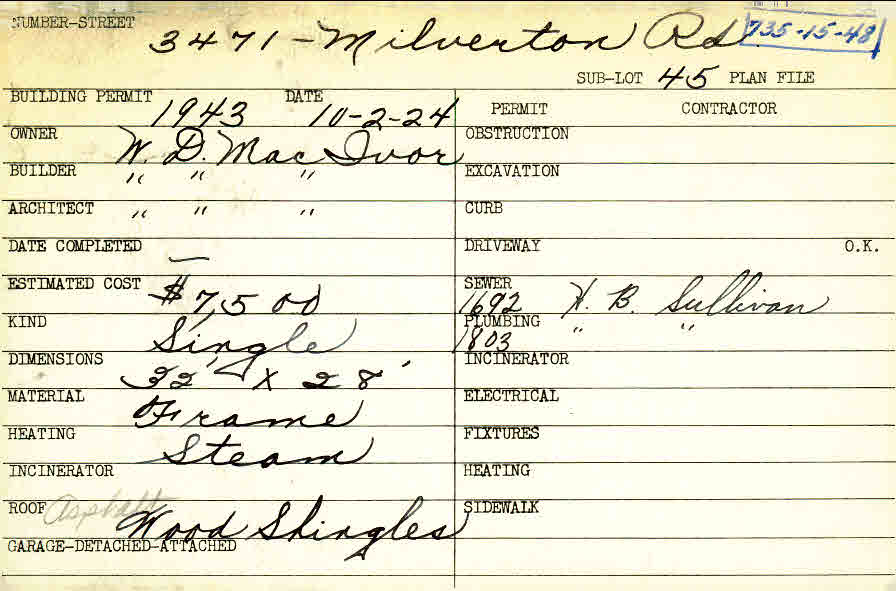 NUMBER-STREET 3471 - Milverton Rd. 735-15-48
SUB-LOT 45 PLAN FILE
BUILDING PERMIT 1943 DATE 10-2-24
OWNER W. D. Mac Ivor
BUILDER " " "
ARCHITECT " " "
DATE COMPLETED —
ESTIMATED COST $7,500
KIND Single
DIMENSIONS 32' x 28'
MATERIAL Frame
HEATING Steam
INCINERATOR
ROOF Asphalt Wood Shingles
GARAGE-DETACHED-ATTACHED
PERMIT CONTRACTOR
OBSTRUCTION
EXCAVATION
CURB
DRIVEWAY O.K.
SEWER
1692 H. B. Sullivan
PLUMBING " "
1803
INCINERATOR
ELECTRICAL
FIXTURES
HEATING
SIDEWALK